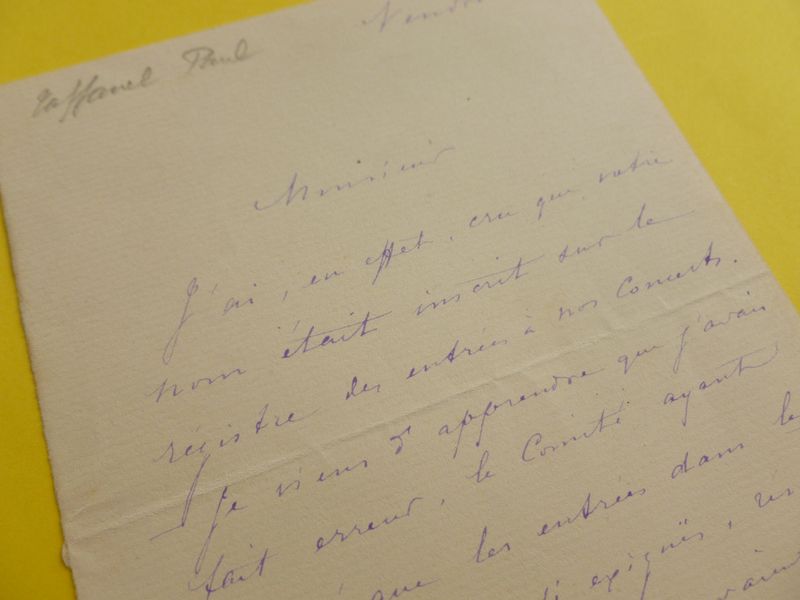 Taffanel Paul
Monsieur
J'ai, en effet, cru que votre
nom était inscrit sur le
régistre des entrées à nos Concerts.
Je viens d'apprendre que j'avais
fait erreur, le Comité ayant
que les entrées dans le
exiguës,